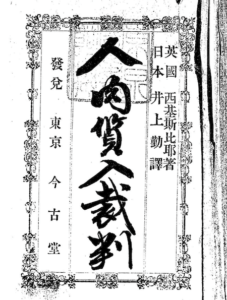 英國 西基斯比耶著
日本 井上勤譯
人肉質入裁判
發兌 東京 今古堂